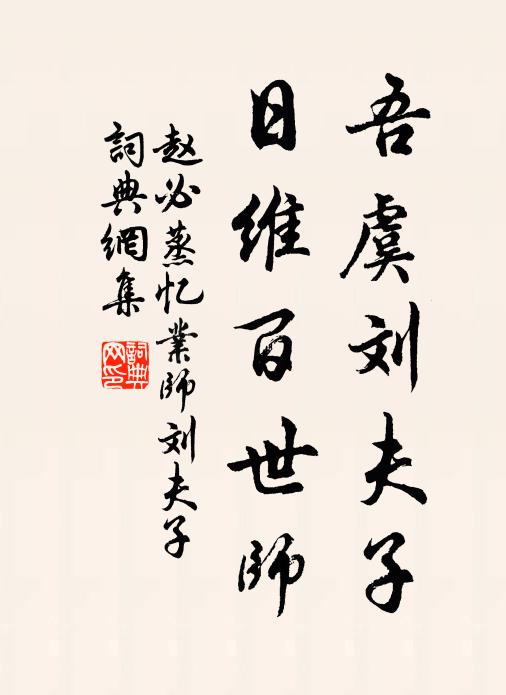 吾虞刘夫子
日维百世师
赵必蒸忆业师刘夫子
詞典網集
詞典网印